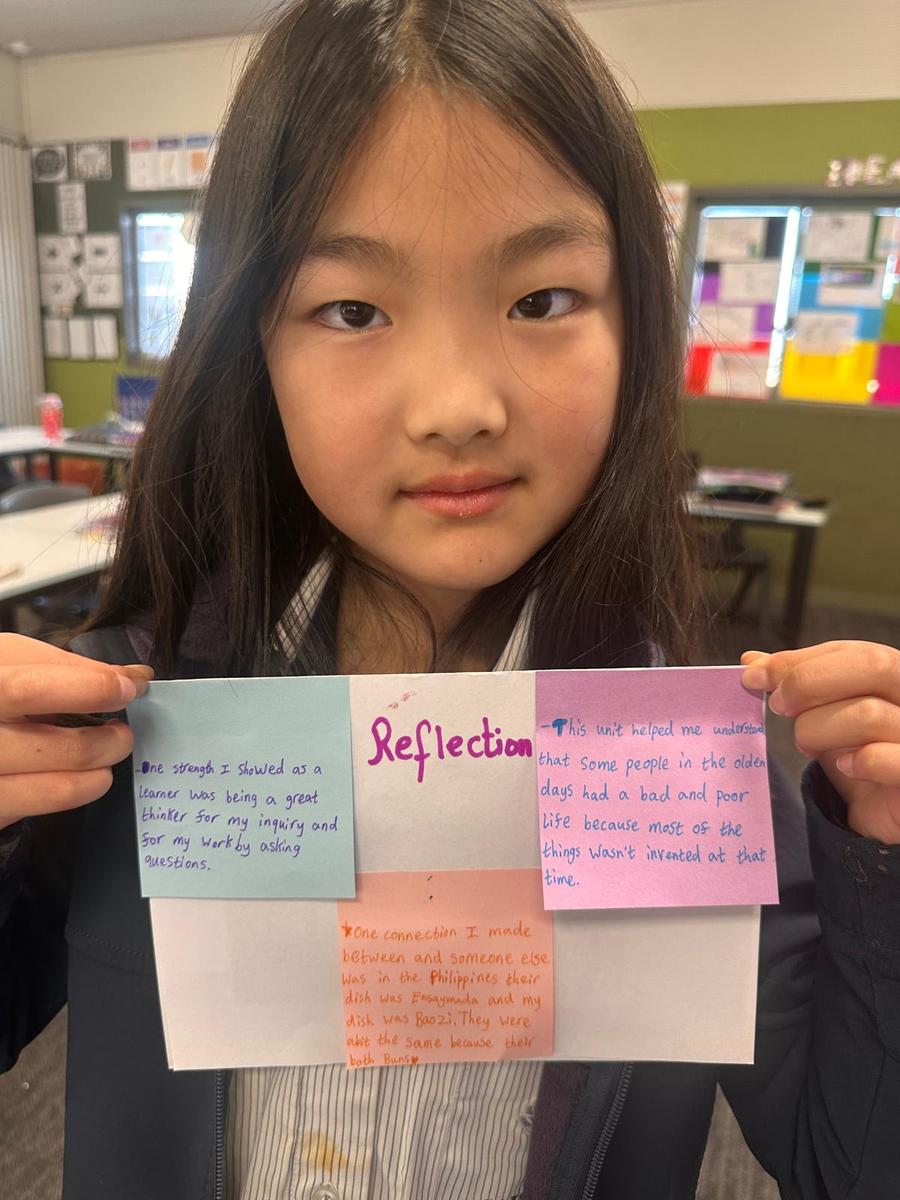 Reflection
-One strength I showed as a
learner was being a great
thinker for my inquiry and
for my work by asking
questions.
-This unit helped me understand
that some people in the olden
days had a bad and poor
life because most of the
things wasn't invented at that
time.
*One connection I made
between and someone else
was in the Philippines their
dish was Ensaymada and my
dish was Baozi. They were
abit the same because their
both Buns♥